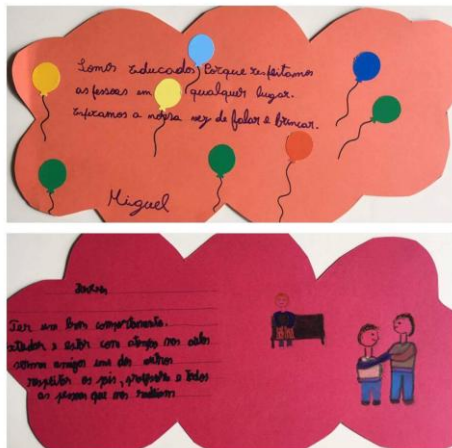 Somos Educados, Porque respeitamos
as pessoas em qualquer lugar.
Esperamos a nossa vez de falar e brincar.
Miguel
Ter um bom comportamento.
estudar e estar com atenção nas aulas
sermos amigos uns dos outros
respeitar os pais, professores e todos
as pessoas que nos rodeiam